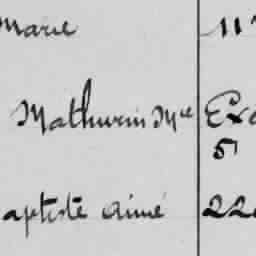 Marie 11
Mathurin Mce Exc
51
aptiste Aimé 22